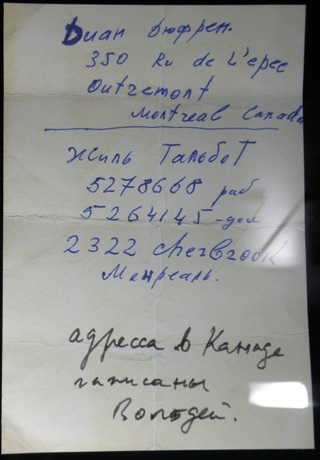 Диан Дюфрен.
350 Ru de L'epee
Outremont
Montreal Canada
Жиль Тальбот
5278668 раб
5264145-дом
2322 Cherbrook
Монреаль.
адресса в Канаде
записаны
Володей.